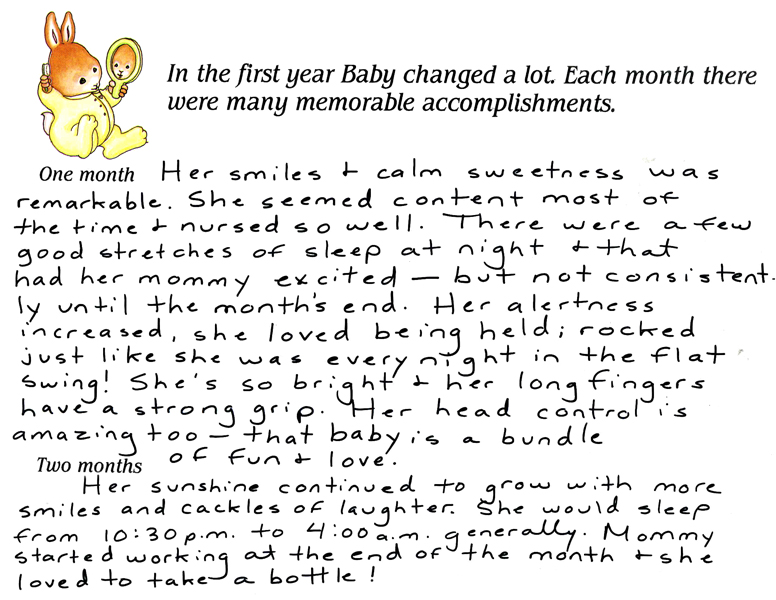 In the first year Baby changed a lot. Each month there
were many memorable accomplishments.
One month Her smiles + calm sweetness was
remarkable. She seemed content most of
the time + nursed so well. There were a few
good stretches of sleep at night + that
had her mommy excited — but not consistent-
ly until the month's end. Her alertness
increased, she loved being held; rocked
just like she was every night in the flat
swing! She's so bright + her long fingers
have a strong grip. Her head control is
amazing too — that baby is a bundle
of fun + love.
Two months
Her sunshine continued to grow with more
smiles and cackles of laughter. She would sleep
from 10:30 p.m. to 4:00 a.m. generally. Mommy
started working at the end of the month + she
loved to take a bottle!